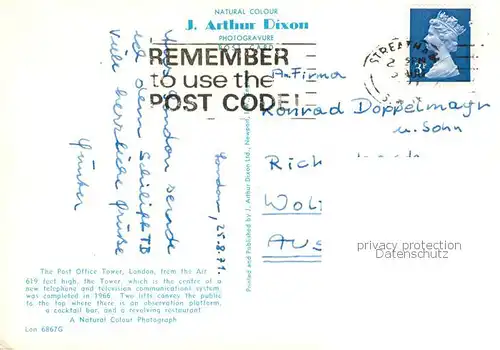 NATURAL COLOUR
J. Arthur Dixon
PHOTOGRAVURE
POST CARD
REMEMBER
to use the
POST CODE!
STREATHAM
An Firma
Konrad Doppelmayr
u. Sohn
Rich
Wol
Aus
London, 25.8.71.
Aus London sende
ich dem Schilift TB
viele herrliche Grüße
Günter
Printed and Published by J. Arthur Dixon Ltd., Newport,
privacy protection
Datenschutz
The Post Office Tower, London, from the Air
619 feet high, the Tower, which is the centre of a
new telephone and television communications system,
was completed in 1966. Two lifts convey the public
to the top where there is an observation platform,
a cocktail bar, and a revolving restaurant
A Natural Colour Photograph
Lon 6867G